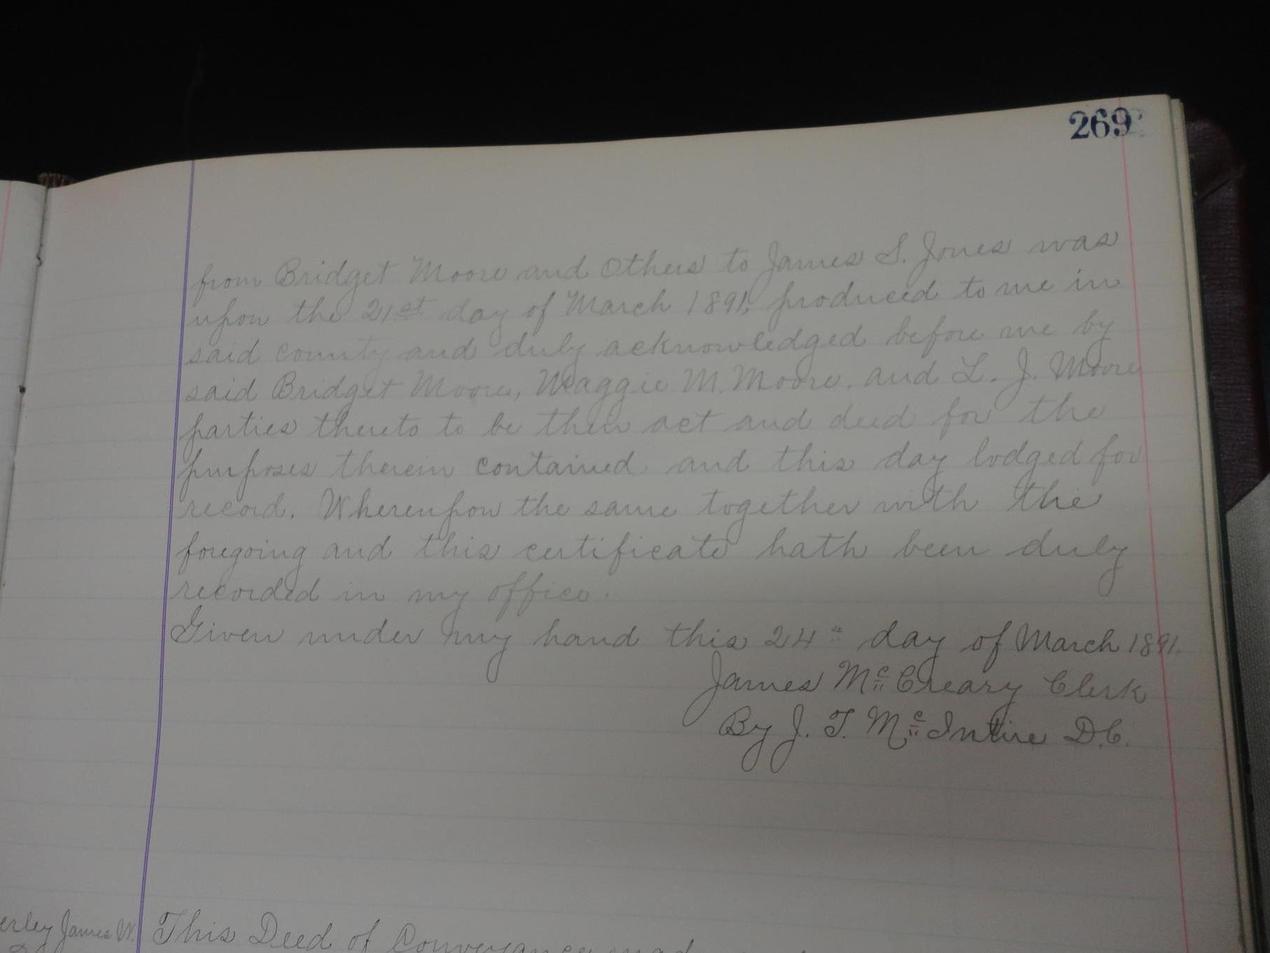 269
from Bridget Moore and Others to James S. Jones was
upon the 21st day of March 1891, produced to me in
said county and duly acknowledged before me by
said Bridget Moore, Maggie M. Moore. and L. J. Moore
parties thereto to be their act and deed for the
purposes therein contained and this day lodged for
record. Whereupon the same together with the
foregoing and this certificate hath been duly
recorded in my office.
Given under my hand this 24" day of March 1891.
James McCreary Clerk
By J. T. McIntire D.C.
erley James W.
This Deed of Conveyance made